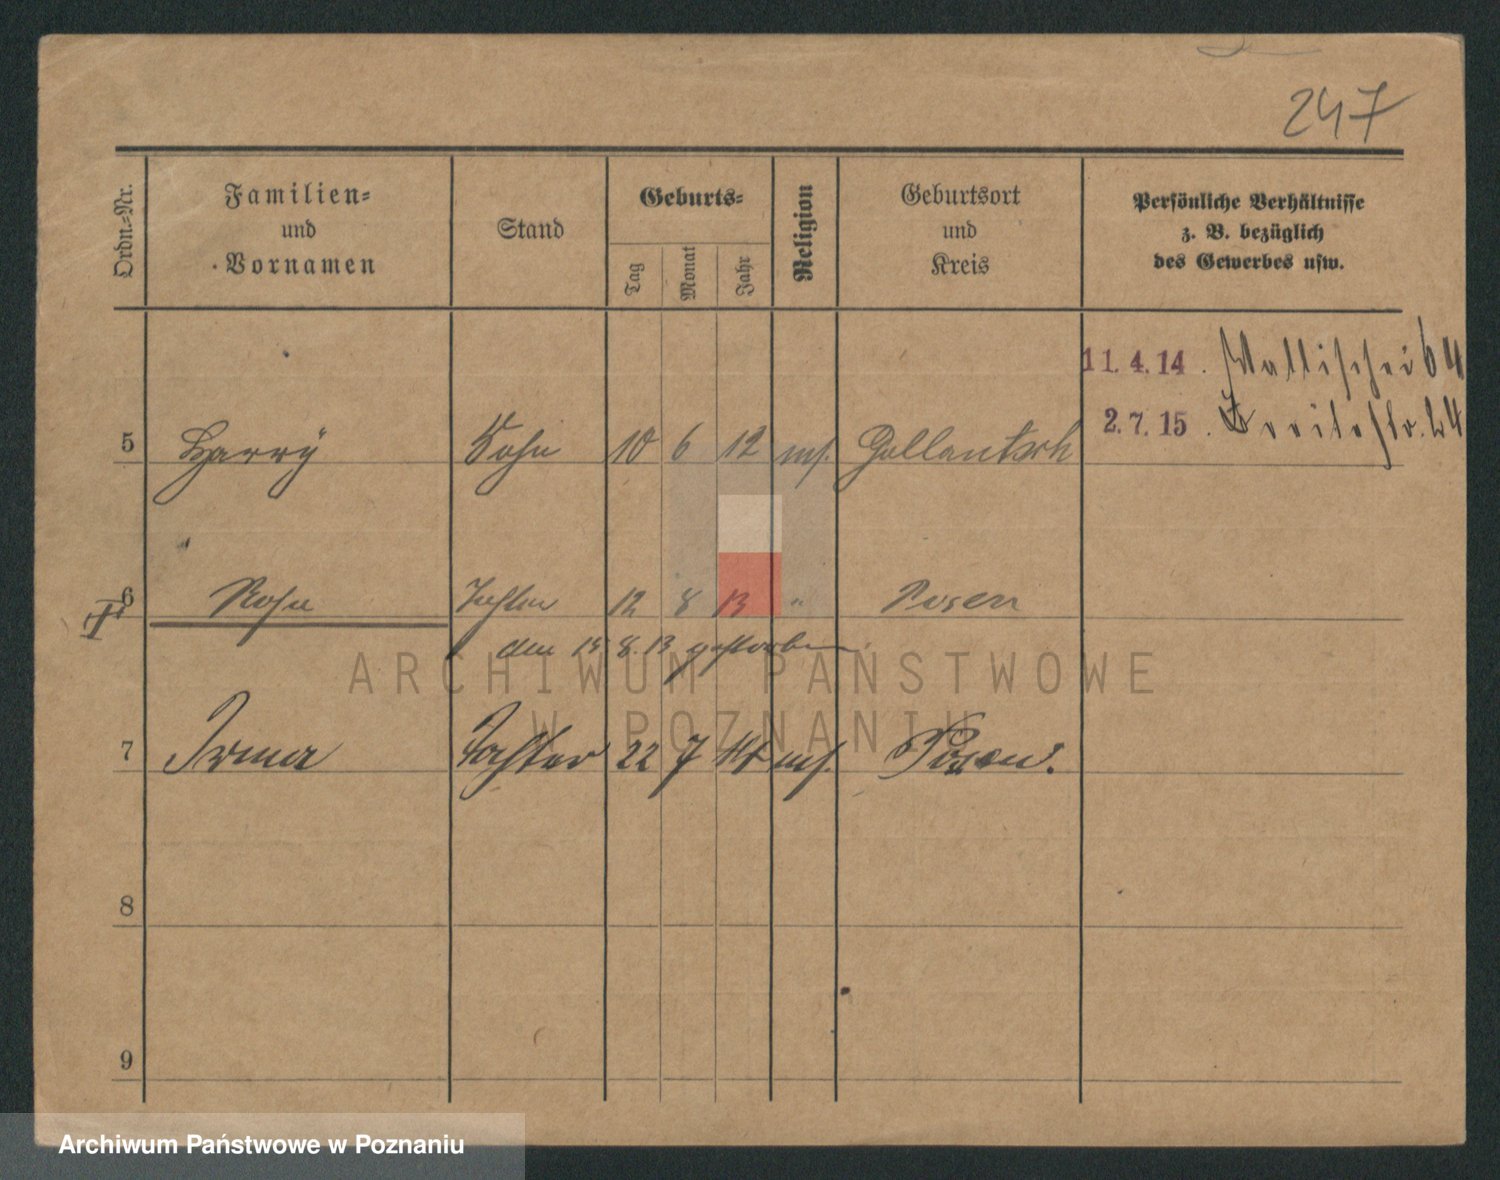 247
Ordn.-Nr.
Familien-
und
Vornamen
Stand
Geburts-
Tag
Monat
Jahr
Religion
Geburtsort
und
Kreis
Persönliche Verhältnisse
z. B. bezüglich
des Gewerbes usw.
11.4.14. Wallischei 64
2.7.15. Breitestr. 24
5 Harry Sohn 10 6 12 ms. Gollantsch
6 Rosa Tochter 12 8 13 " Posen
den 8.13 gestorben.
7 Irma Tochter 22 7 14 ms. Posen.
8
9
ARCHIWUM PAŃSTWOWE
W POZNANIU
Archiwum Państwowe w Poznaniu